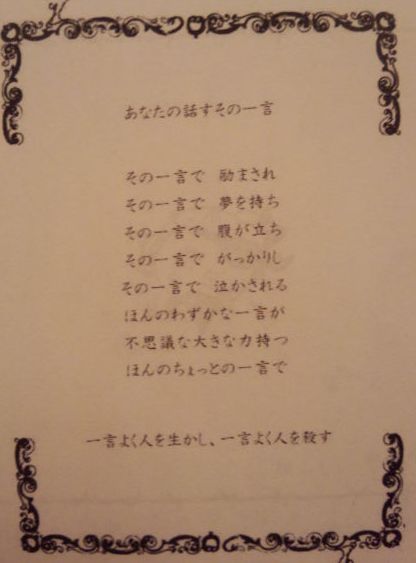 あなたの話すその一言
その一言で 励まされ
その一言で 夢を持ち
その一言で 腹が立ち
その一言で がっかりし
その一言で 泣かされる
ほんのわずかな一言が
不思議な大きな力持つ
ほんのちょっとの一言で
一言よく人を生かし、一言よく人を殺す